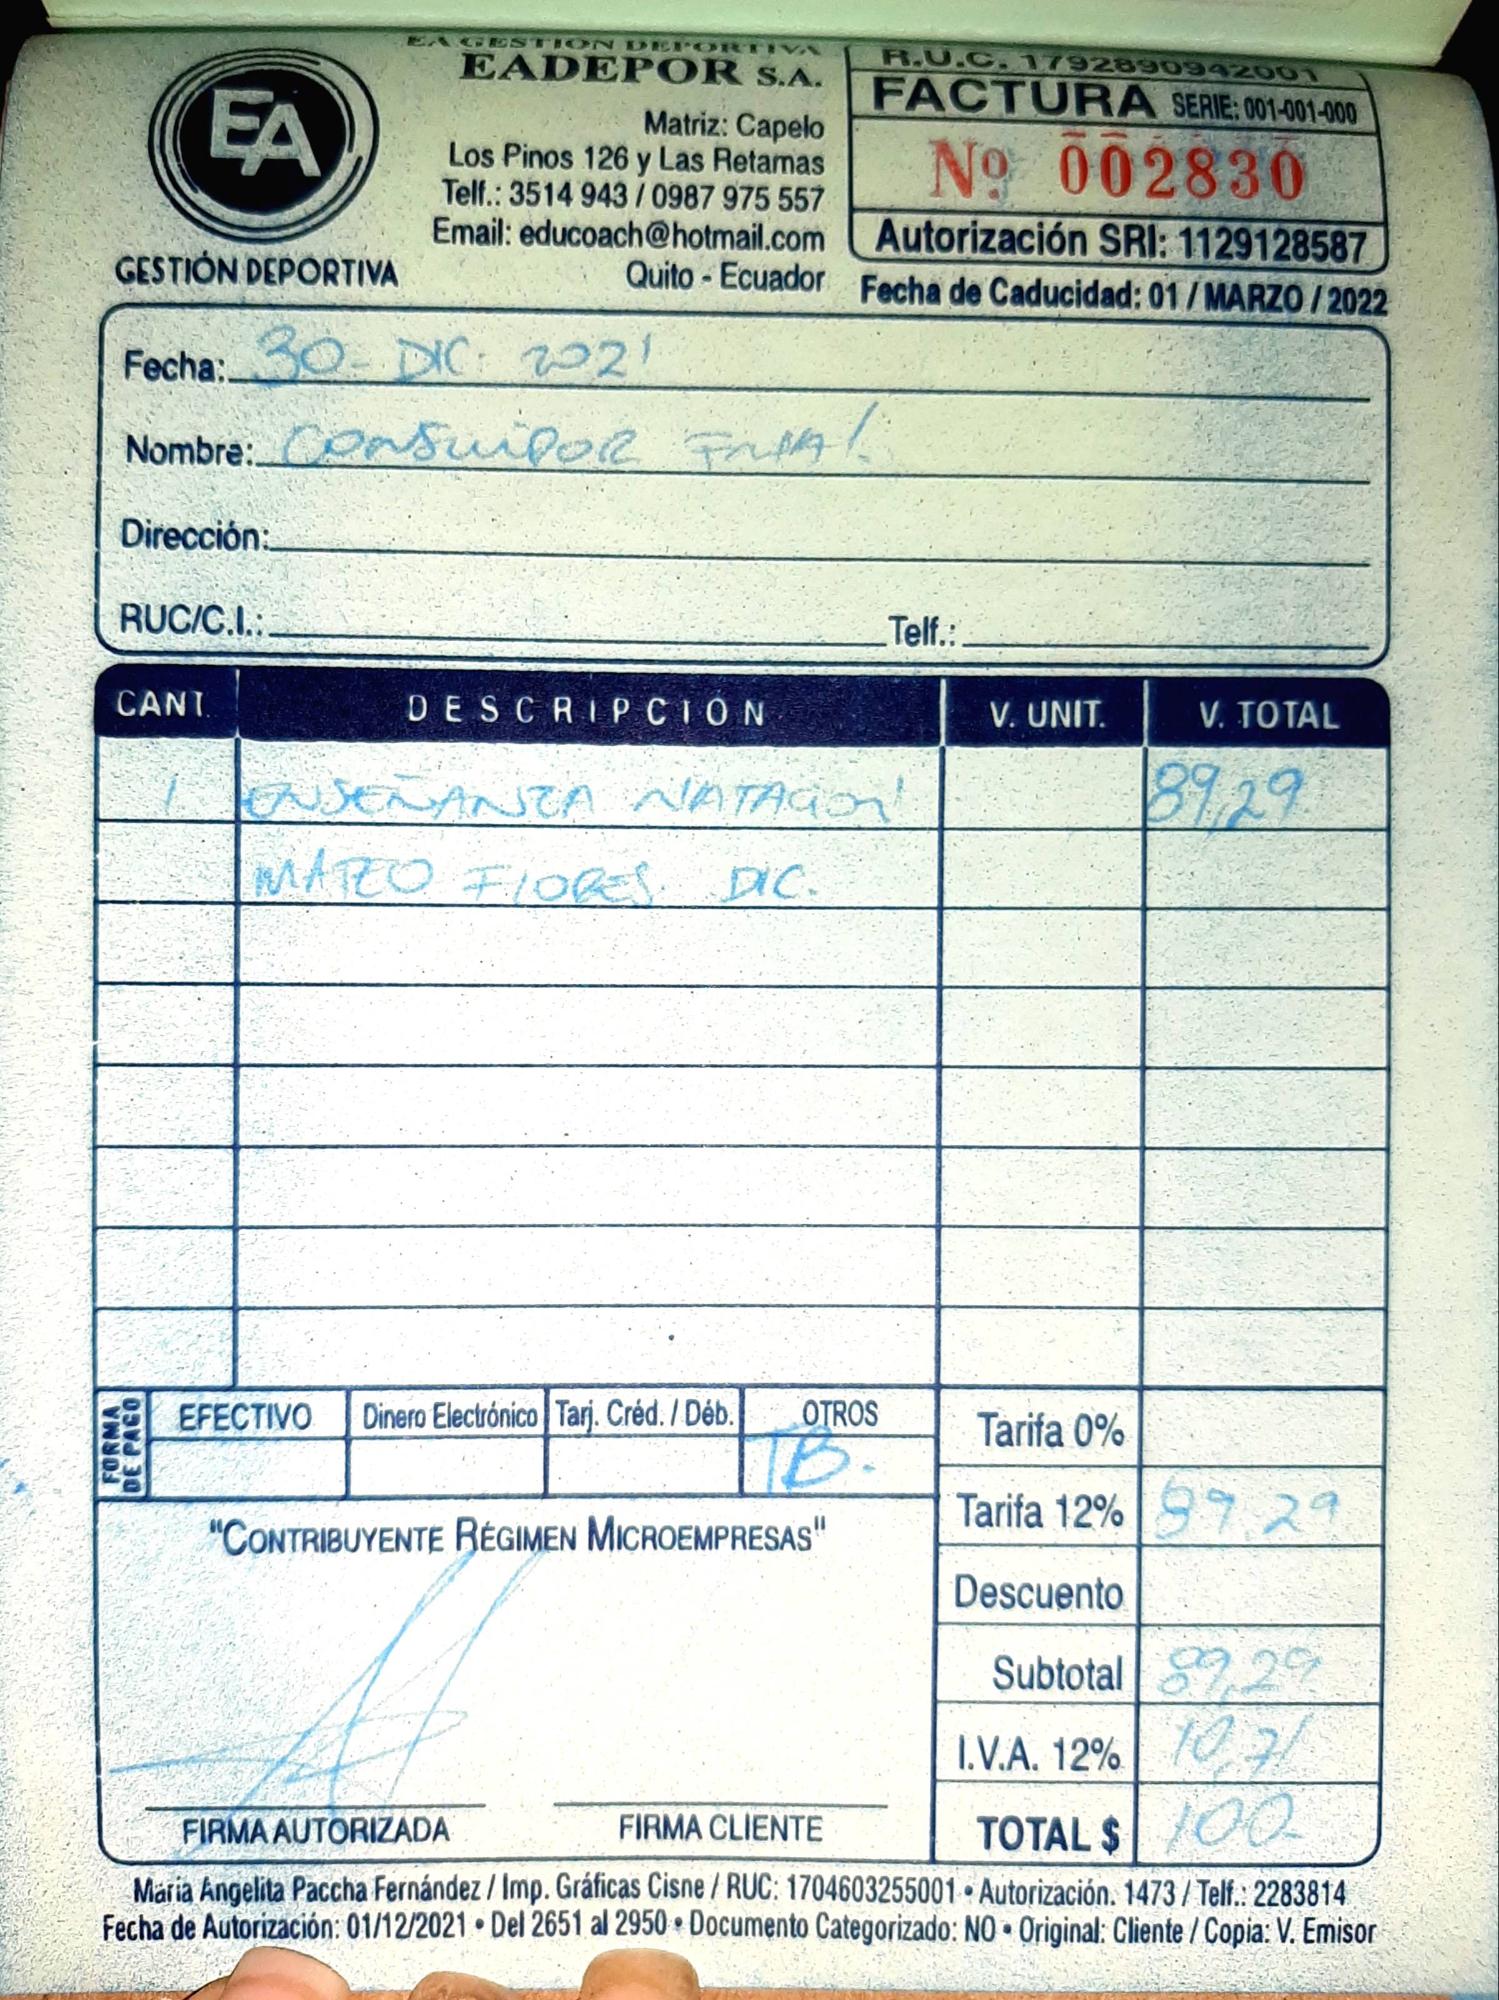 EA GESTION DEPORTIVA
EADEPOR S.A.
EA
GESTIÓN DEPORTIVA
Matriz: Capelo
Los Pinos 126 y Las Retamas
Telf.: 3514 943 / 0987 975 557
Email: educoach@hotmail.com
Quito - Ecuador
R.U.C. 1792890942001
FACTURA SERIE: 001-001-000
Nº 002830
Autorización SRI: 1129128587
Fecha de Caducidad: 01 / MARZO / 2022
Fecha: 30 - DIC. 2021
Nombre: CONSUMIDOR FINAL
Dirección:
RUC/C.I.: Telf.:
CANT. DESCRIPCIÓN V. UNIT. V. TOTAL
1 ENSEÑANZA NATACION 89,29
MATEO FLORES. DIC.
FORMA DE PAGO
EFECTIVO Dinero Electrónico Tarj. Créd. / Déb. OTROS
TB.
Tarifa 0%
Tarifa 12% 89.29
Descuento
Subtotal 89,29
I.V.A. 12% 10,71
TOTAL $ 100-
"CONTRIBUYENTE RÉGIMEN MICROEMPRESAS"
FIRMA AUTORIZADA FIRMA CLIENTE
María Angelita Paccha Fernández / Imp. Gráficas Cisne / RUC: 1704603255001 • Autorización. 1473 / Telf.: 2283814
Fecha de Autorización: 01/12/2021 • Del 2651 al 2950 • Documento Categorizado: NO • Original: Cliente / Copia: V. Emisor